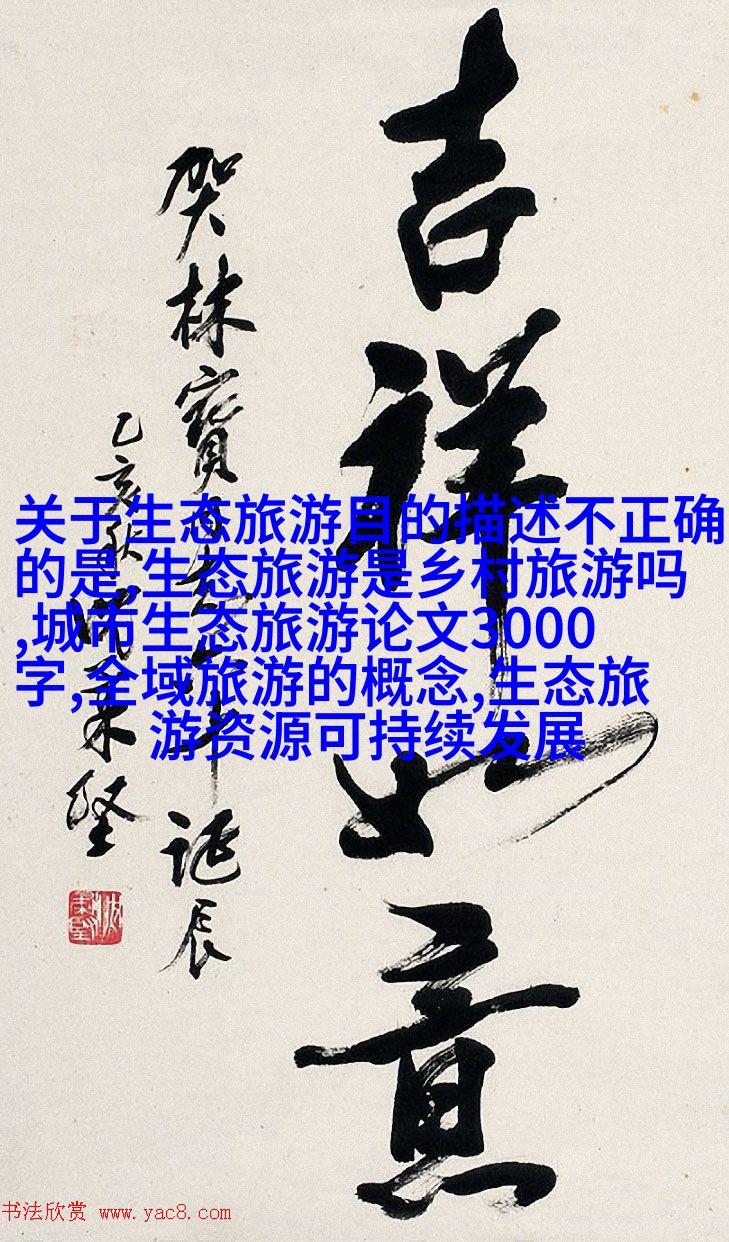 吉祥如意
贺林宝
诞辰
乙亥秋
关于生态旅游目的描述不正确
的是,生态旅游是乡村旅游吗
,城市生态旅游论文3000
字,全域旅游的概念,生态旅
游资源可持续发展
书法欣赏 www.yac8.com